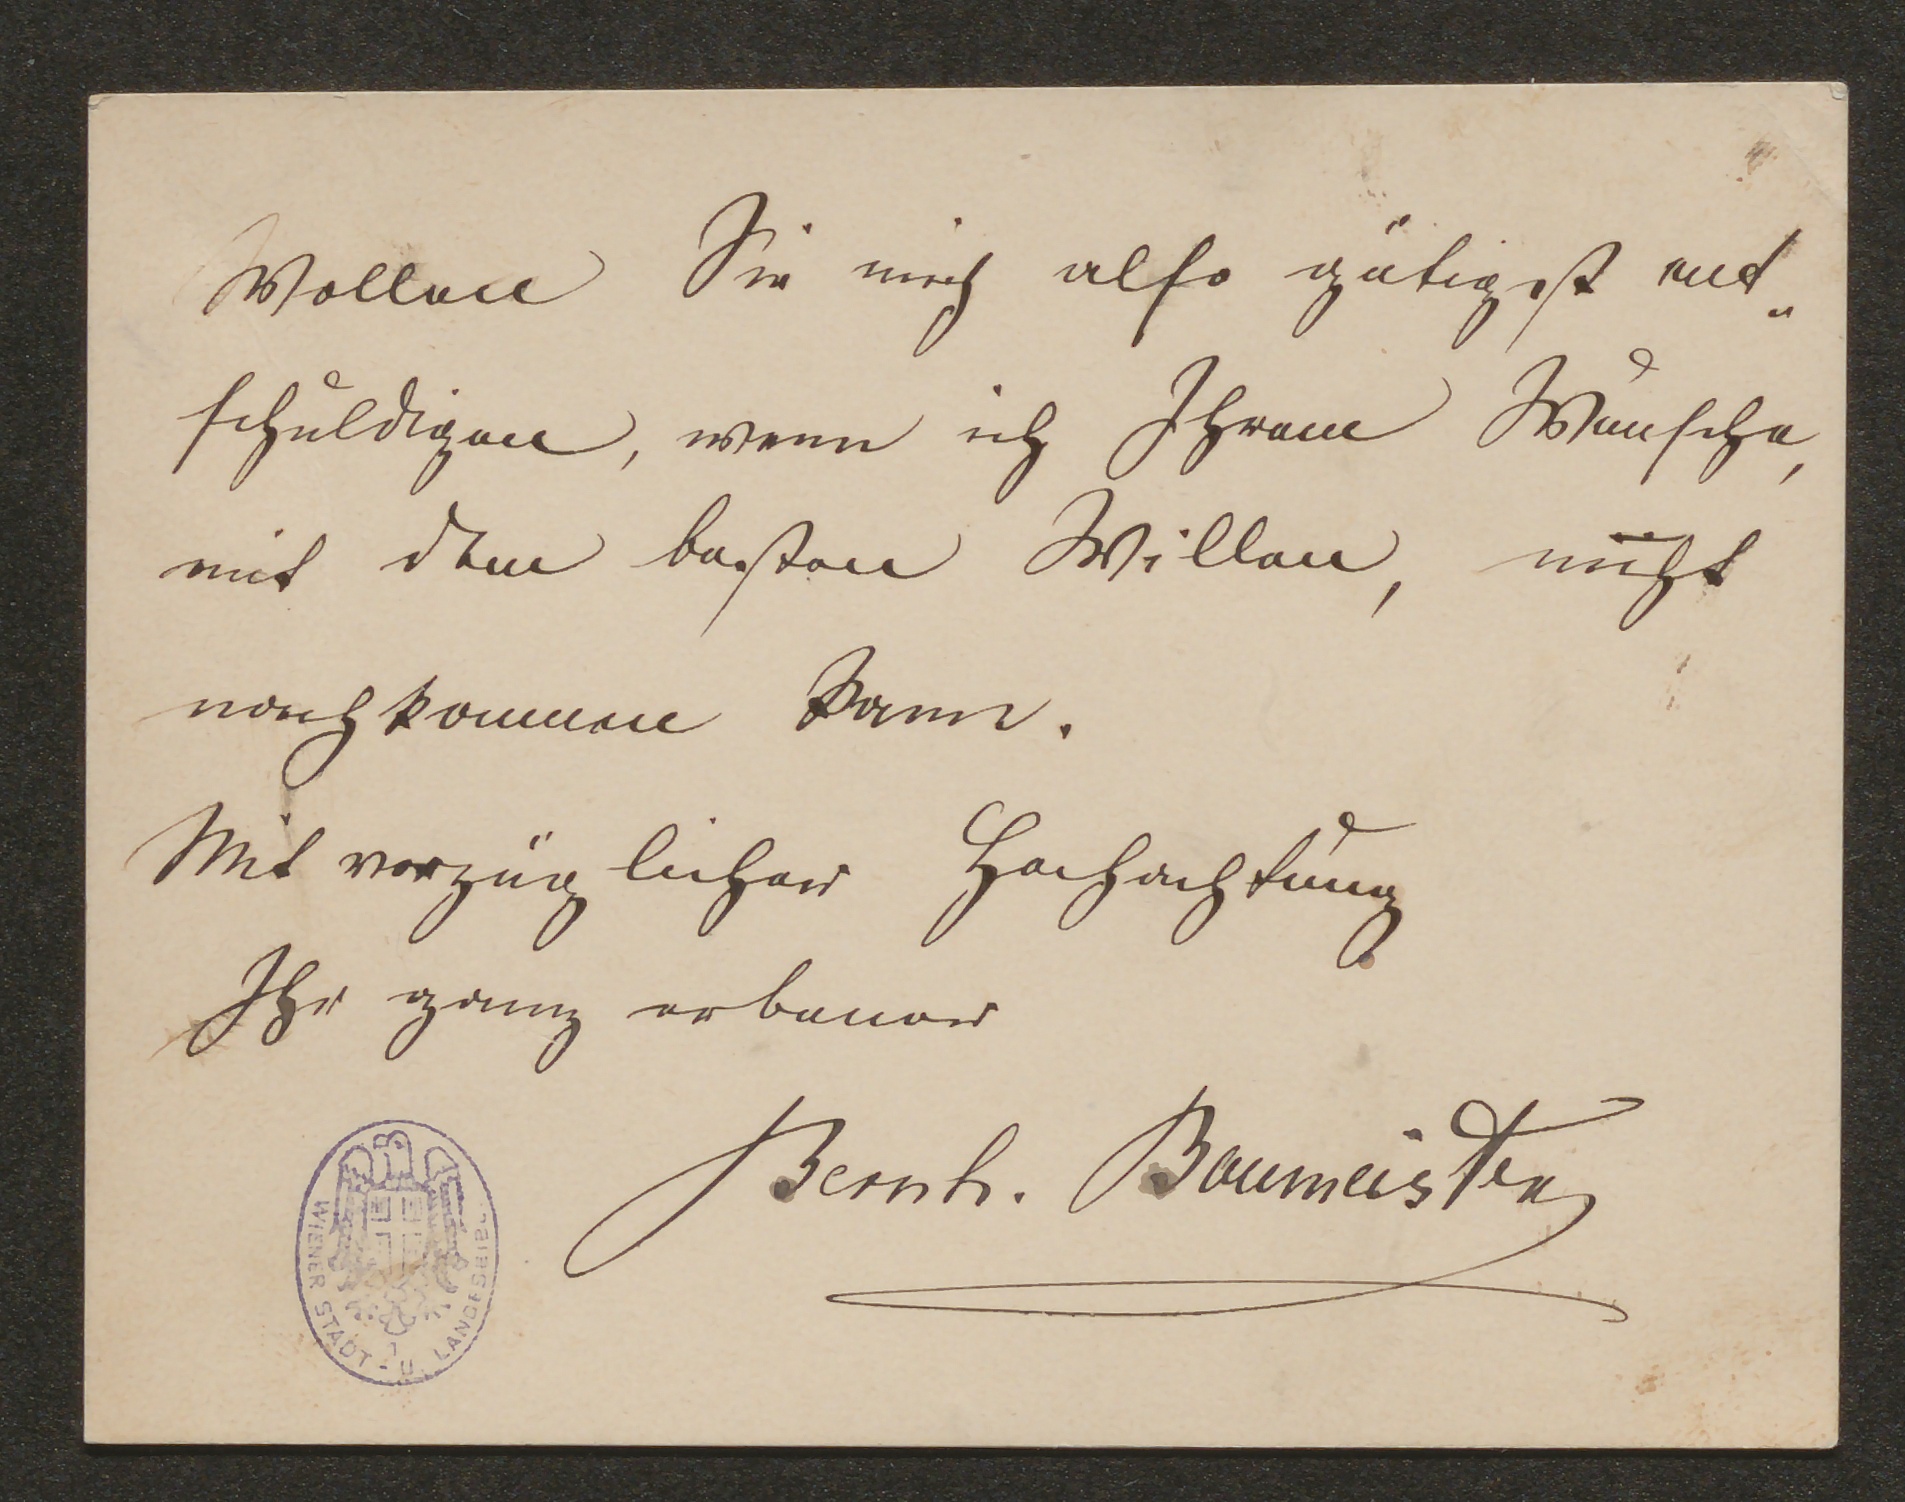 Wollen Sie mich also gütigst ent„
schuldigen, wenn ich Ihrem Wunsche,
mit dem besten Willen, nicht
nachkommen kann.
Mit vorzüglicher Hochachtung
Ihr ganz erbener
Bernh. Baumeister
WIENER STADT- U. LANDESBIBL.